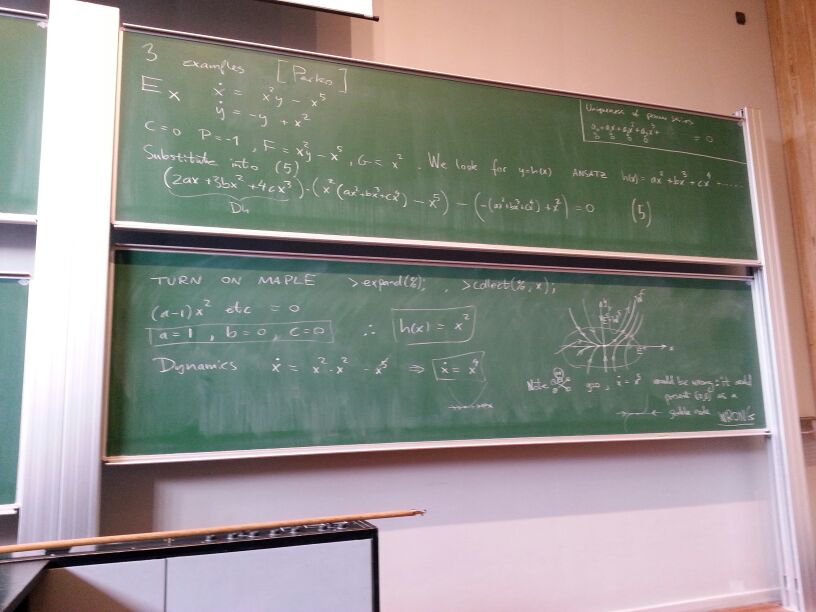 3 examples [Perko]
Ex ẋ = x²y - x⁵
ẏ = -y + x²
C=0 P=-1, F = x²y - x⁵, G = x². We look for y=h(x) ANSATZ h(x) = ax² + bx³ + cx⁴ + ......
Substitute into (5)
(2ax + 3bx² + 4cx³)·(x²(ax²+bx³+cx⁴) - x⁵) - (-(ax²+bx³+cx⁴) + x²) = 0 (5)
Dh
Uniqueness of power series
a₀+a₁x+a₂x²+a₃x³+ = 0
0 0 0 0
TURN ON MAPLE >expand(%); , >collect(%, x);
(a-1)x² etc = 0
a=1, b=0, c=0 ∴ h(x) = x²
Dynamics ẋ = x²·x² - x⁵ ⇒ ẋ = x⁴
Note y=0, ẋ = x⁵ would be wrong: it would
present (0,0) as a
stable node WRONG